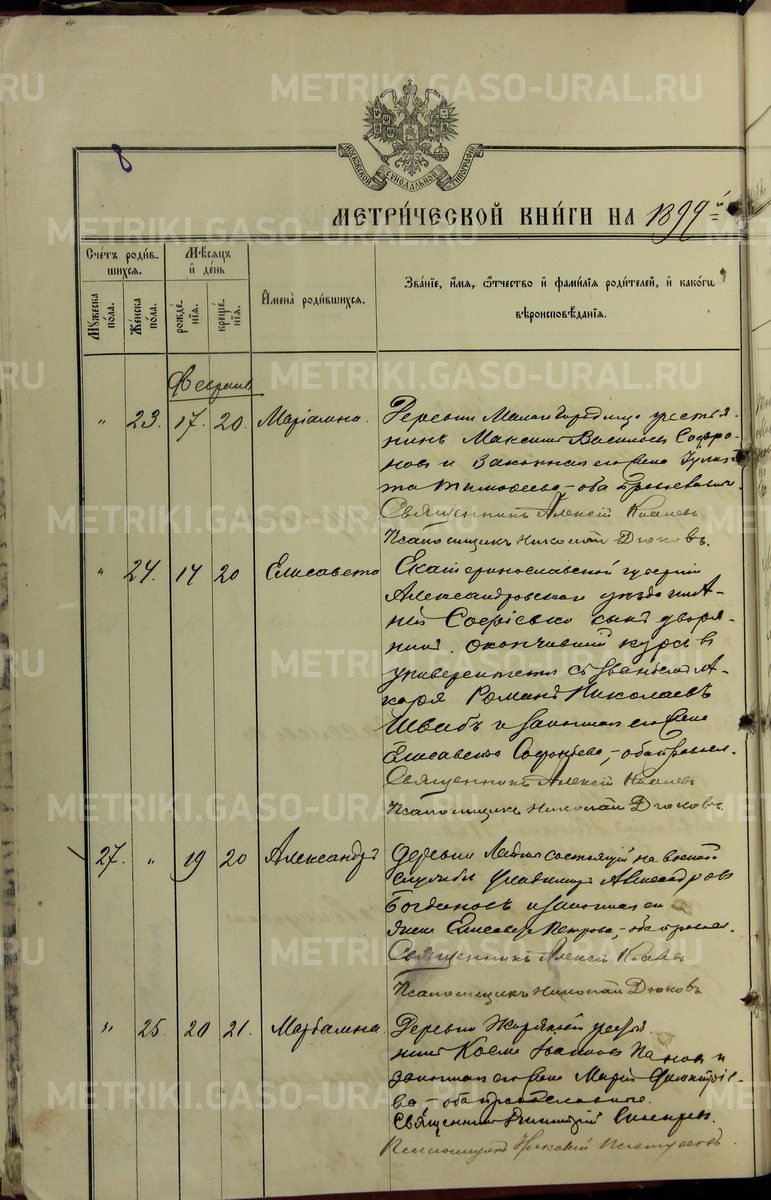 8
МОСКОВСКОЙ СѴНОДАЛЬНОЙ ТИПОГРАФІИ
МЕТРИ́ЧЕСКОЙ КНИ́ГИ НА 1899й
Сче́тъ роди́в-
шихся.
Мꙋ́жеска по́ла.
Же́нска по́ла.
Мѣ́сяцъ
и҆ де́нь
рожде́-
нїѧ.
креще́-
нїѧ.
И҆мена̀ роди́вшихся.
Зва́нїе, и҆́мѧ, ѻ҆́тчество и҆ фамі́лїѧ роди́телей, и҆ како́гѡ
вѣроисповѣ́данїѧ.
Февраль
" 23. 17. 20. Маріамна. Деревни Малаго Городища крестья-
нинъ Максимъ Васильевъ Софро-
новъ и законная его жена Улит-
та Тимофеева, - оба православные.
Священникъ Алексій
Псаломщикъ Николай Дюковъ.
" 24. 14 20 Елисавета Екатеринославской губерніи
Александровскаго уѣзда
Софіевки сынъ дворя-
нина, окончившій курсъ въ
университетѣ съ званіемъ лѣ-
каря Романъ Николаевъ
Швабъ и законная его жена
Елисавета, - оба правосл.
Священникъ Алексій
Псаломщикъ Николай Дюковъ.
27. " 19 20 Александръ Деревни состоящій на военной
службѣ Владимиръ Александровъ
Богдановъ и законная его
жена Елисавета Петрова, - оба правосл.
Священникъ Алексій
Псаломщикъ Николай Дюковъ
" 25. 20 21. Марѳамна. Деревни крестья-
нинъ Косма Ивановъ Пановъ и
законная его жена Марія Димитріе-
ва - оба православные.
Священникъ Димитрій
Псаломщикъ
METRIKI.GASO-URAL.RU